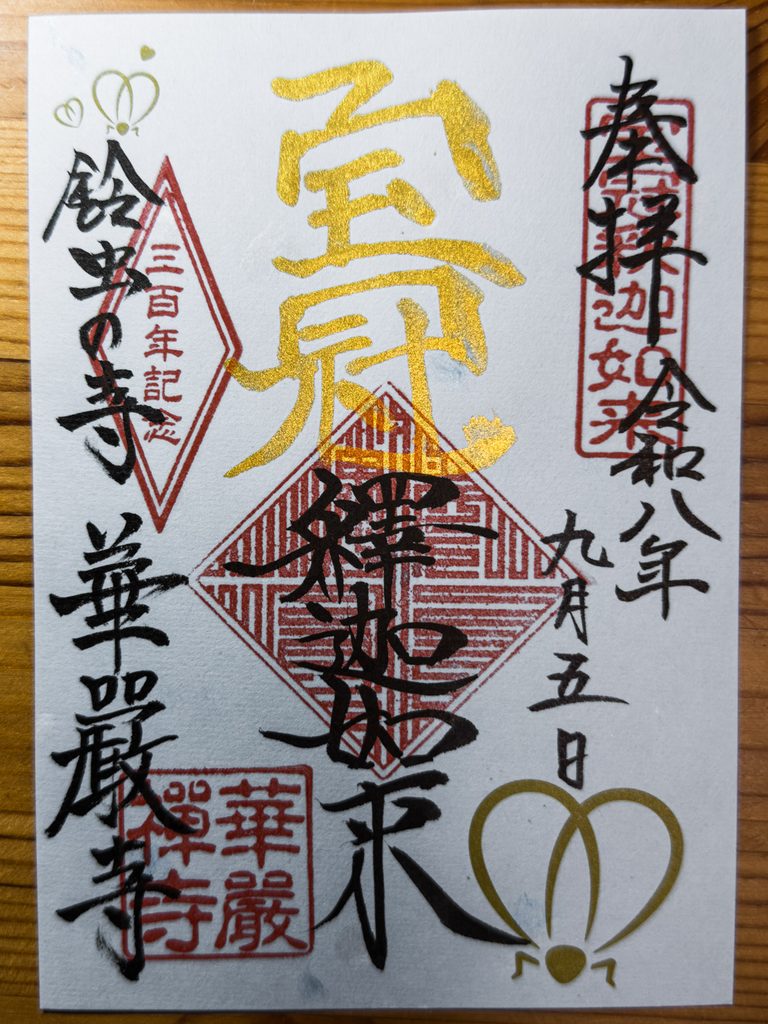 奉拝
令和八年
九月五日
宝冠
釋迦如来
鈴虫の寺
華嚴寺
三百年記念
宝冠釈迦如来
華嚴
禅寺